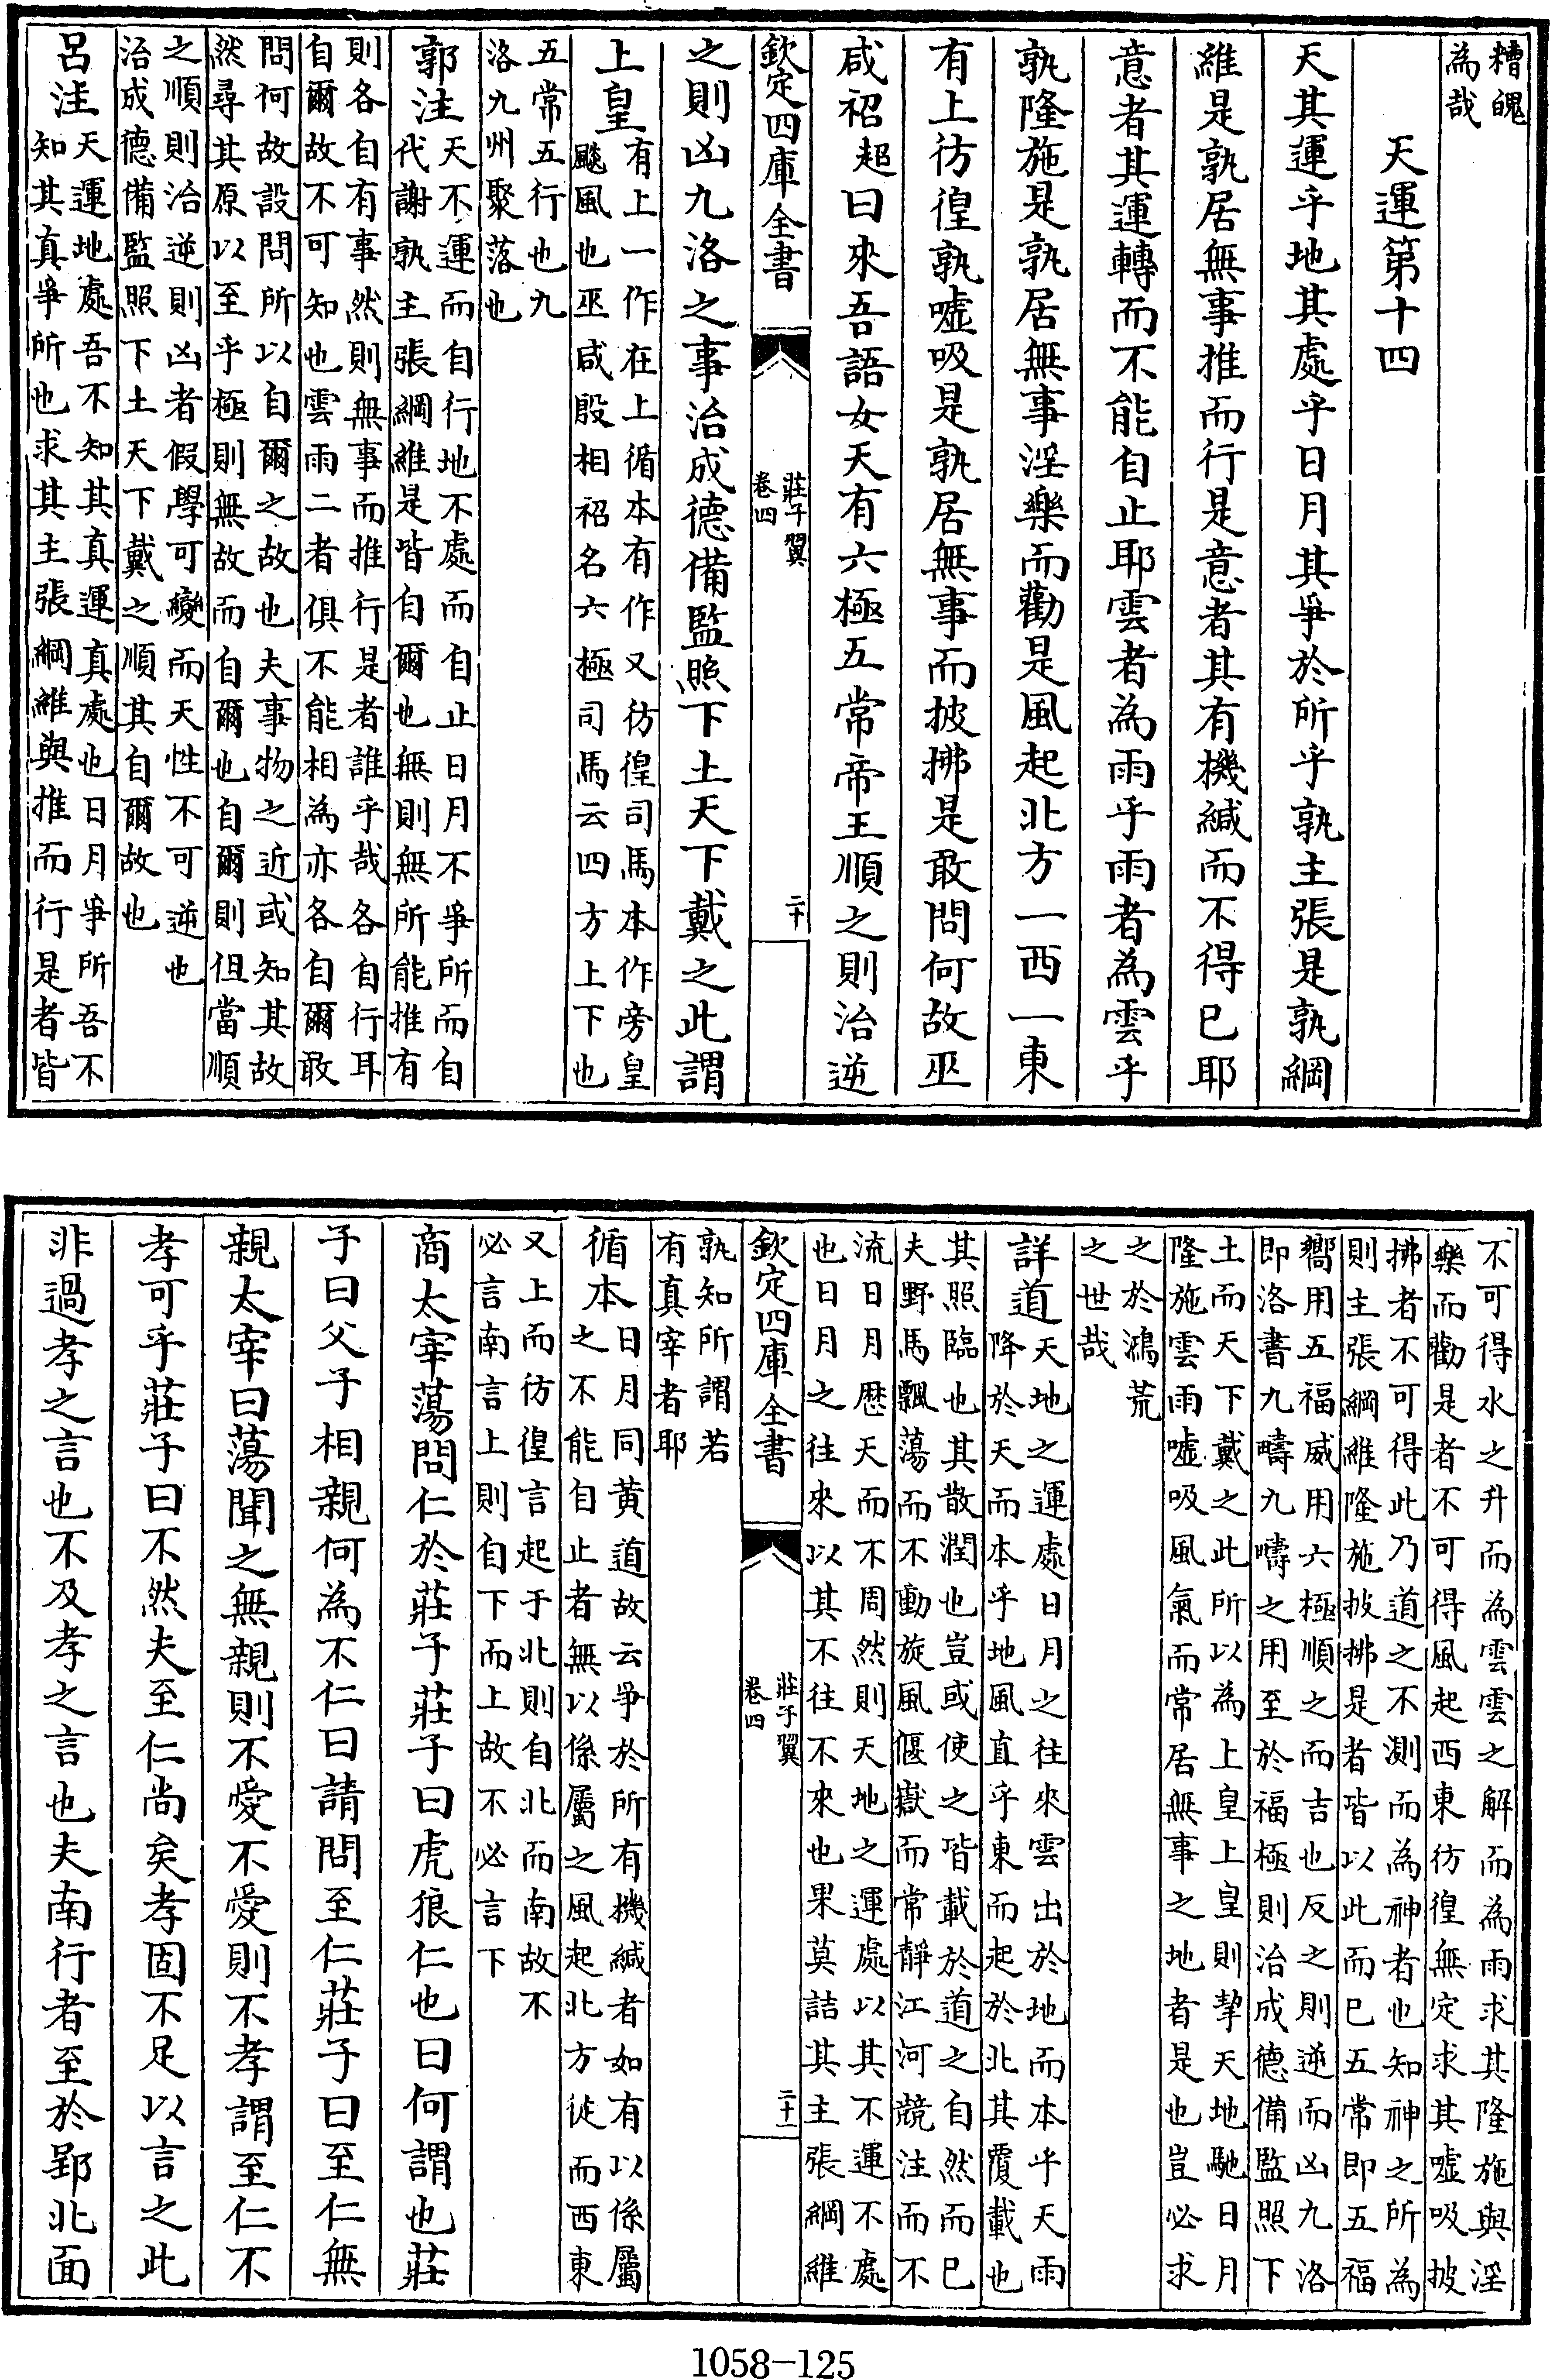 糟魄
為哉
天運第十四
天其運乎地其處乎日月其爭於所乎孰主張是孰綱
維是孰居無事推而行是意者其有機緘而不得已耶
意者其運轉而不能自止耶雲者為雨乎雨者為雲乎
孰隆施是孰居無事淫樂而勸是風起北方一西一東
有上彷徨孰噓吸是孰居無事而披拂是敢問何故巫
咸祒曰來吾語女天有六極五常帝王順之則治逆
欽定四庫全書
莊子翼
卷四
二十
之則凶九洛之事治成德備監照下土天下戴之此謂
上皇
有上一作在上循本有作又彷徨司馬本作旁皇
飈風也巫咸殷相祒名六極司馬云四方上下也
五常五行也九
洛九州聚落也
郭注
天不運而自行地不處而自止日月不爭所而自
代謝孰主張綱維是皆自爾也無則無所能推有
則各自有事然則無事而推行是者誰乎哉各自行耳
自爾故不可知也雲雨二者俱不能相為亦各自爾敢
問何故設問所以自爾之故也夫事物之近或知其故
然尋其原以至乎極則無故而自爾也自爾則但當順
之順則治逆則凶者假學可變而天性不可逆也
治成德備監照下土天下戴之順其自爾故也
呂注
天運地處吾不知其真運真處也日月爭所吾不
知其真爭所也求其主張綱維與推而行是者皆
不可得水之升而為雲雲之解而為雨求其隆施與淫
樂而勸是者不可得風起西東彷徨無定求其噓吸披
拂者不可得此乃道之不測而為神者也知神之所為
則主張綱維隆施披拂是者皆以此而已五常即五福
嚮用五福威用六極順之而吉也反之則逆而凶九洛
即洛書九疇九疇之用至於福極則治成德備監照下
土而天下戴之此所以為上皇上皇則挈天地馳日月
隆施雲雨噓吸風氣而常居無事之地者是也豈必求
之於鴻荒
之世哉
詳道
天地之運處日月之往來雲出於地而本乎天雨
降於天而本乎地風直乎東而起於北其覆載也
其照臨也其散潤也豈或使之皆載於道之自然而已
夫野馬飄蕩而不動旋風偃嶽而常靜江河競注而不
流日月歷天而不周然則天地之運處以其不運不處
也日月之往來以其不往不來也果莫詰其主張綱維
欽定四庫全書
莊子翼
卷四
二十一
孰知所謂若
有真宰者耶
循本
日月同黃道故云爭於所有機緘者如有以係屬
之不能自止者無以係屬之風起北方從而西東
又上而彷徨言起于北則自北而南故不
必言南言上則自下而上故不必言下
商太宰蕩問仁於莊子莊子曰虎狼仁也曰何謂也莊
子曰父子相親何為不仁曰請問至仁莊子曰至仁無
親太宰曰蕩聞之無親則不愛不愛則不孝謂至仁不
孝可乎莊子曰不然夫至仁尚矣孝固不足以言之此
非過孝之言也不及孝之言也夫南行者至於郢北面
1058-125